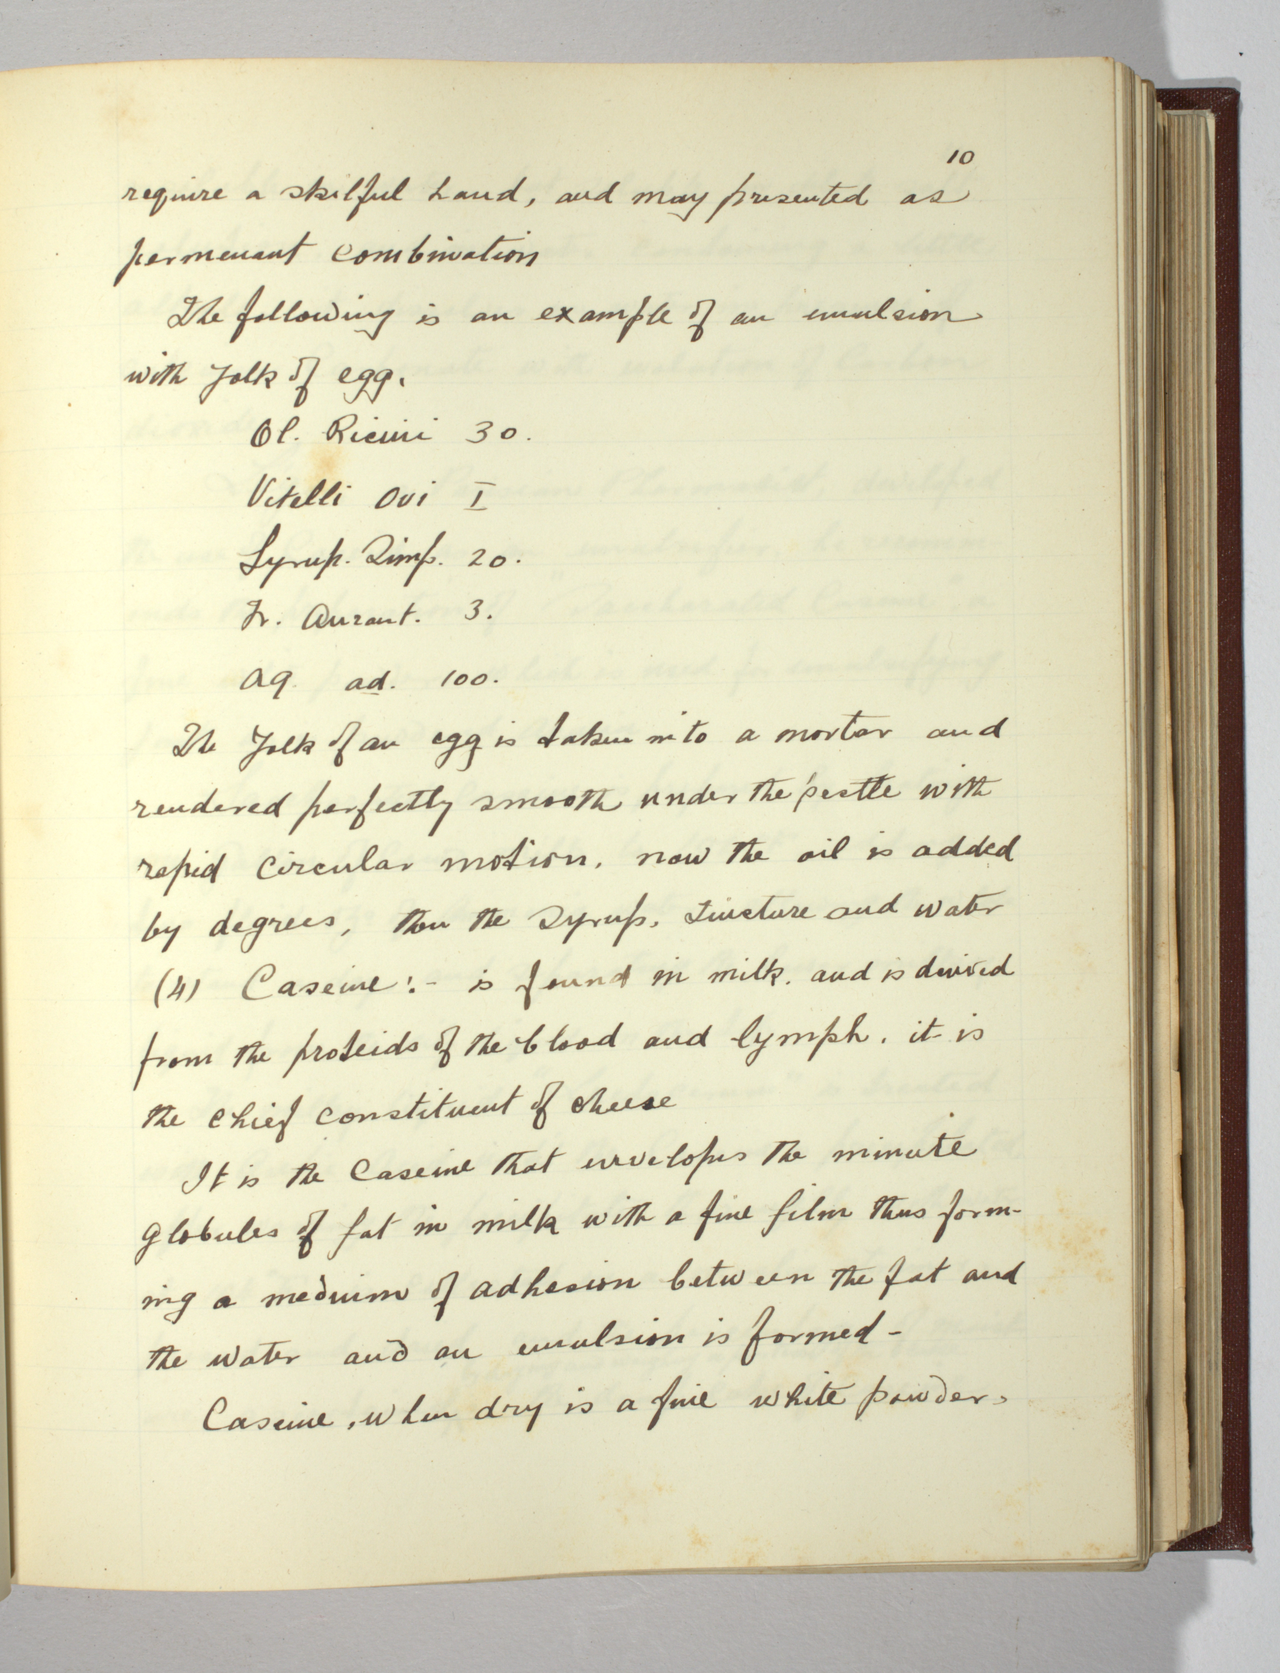 10
require a skilful hand, and may presented as
permenant combination
The following is an example of an emulsion
with Yolk of egg.
Ol. Ricini 30.
Vitelli Ovi I
Syrup. Simp. 20.
Tr. Aurant. 3.
Aq. ad. 100.
The Yolk of an egg is taken into a mortar and
rendered perfectly smooth under the pestle with
rapid circular motion. now the oil is added
by degrees, then the Syrup, Tincture and water
(4) Caseine :- is found in milk. and is derived
from the proteids of the blood and lymph. it is
the chief constituent of cheese
It is the Caseine that envelopes the minute
globules of fat in milk with a fine film thus form-
ing a medium of adhesion between the fat and
the water and an emulsion is formed -
Caseine, when dry is a fine white powder,